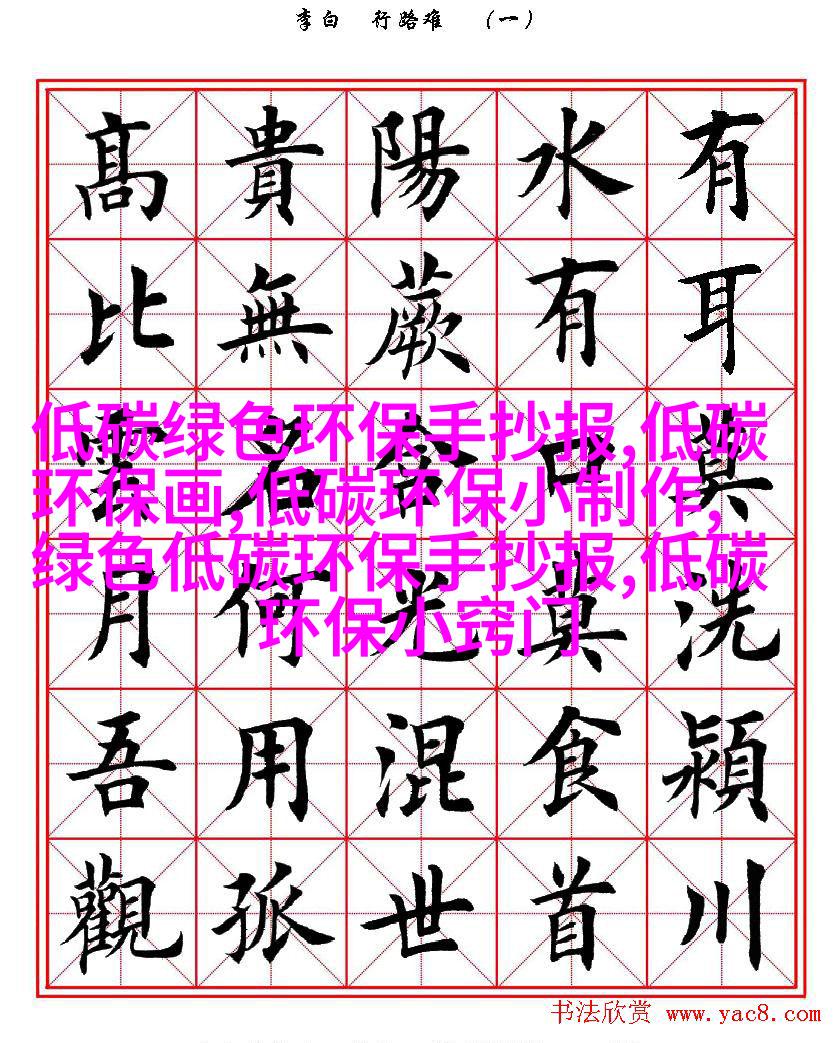 李白 行路难 （一）
有耳莫洗潁川
水有口莫食首
陽蕨含光混世
貴無名何用孤
髙比雲月吾觀
低碳绿色环保手抄报,低碳
环保画,低碳环保小制作,
绿色低碳环保手抄报,低碳
环保小窍门
书法欣赏 www.yac8.com